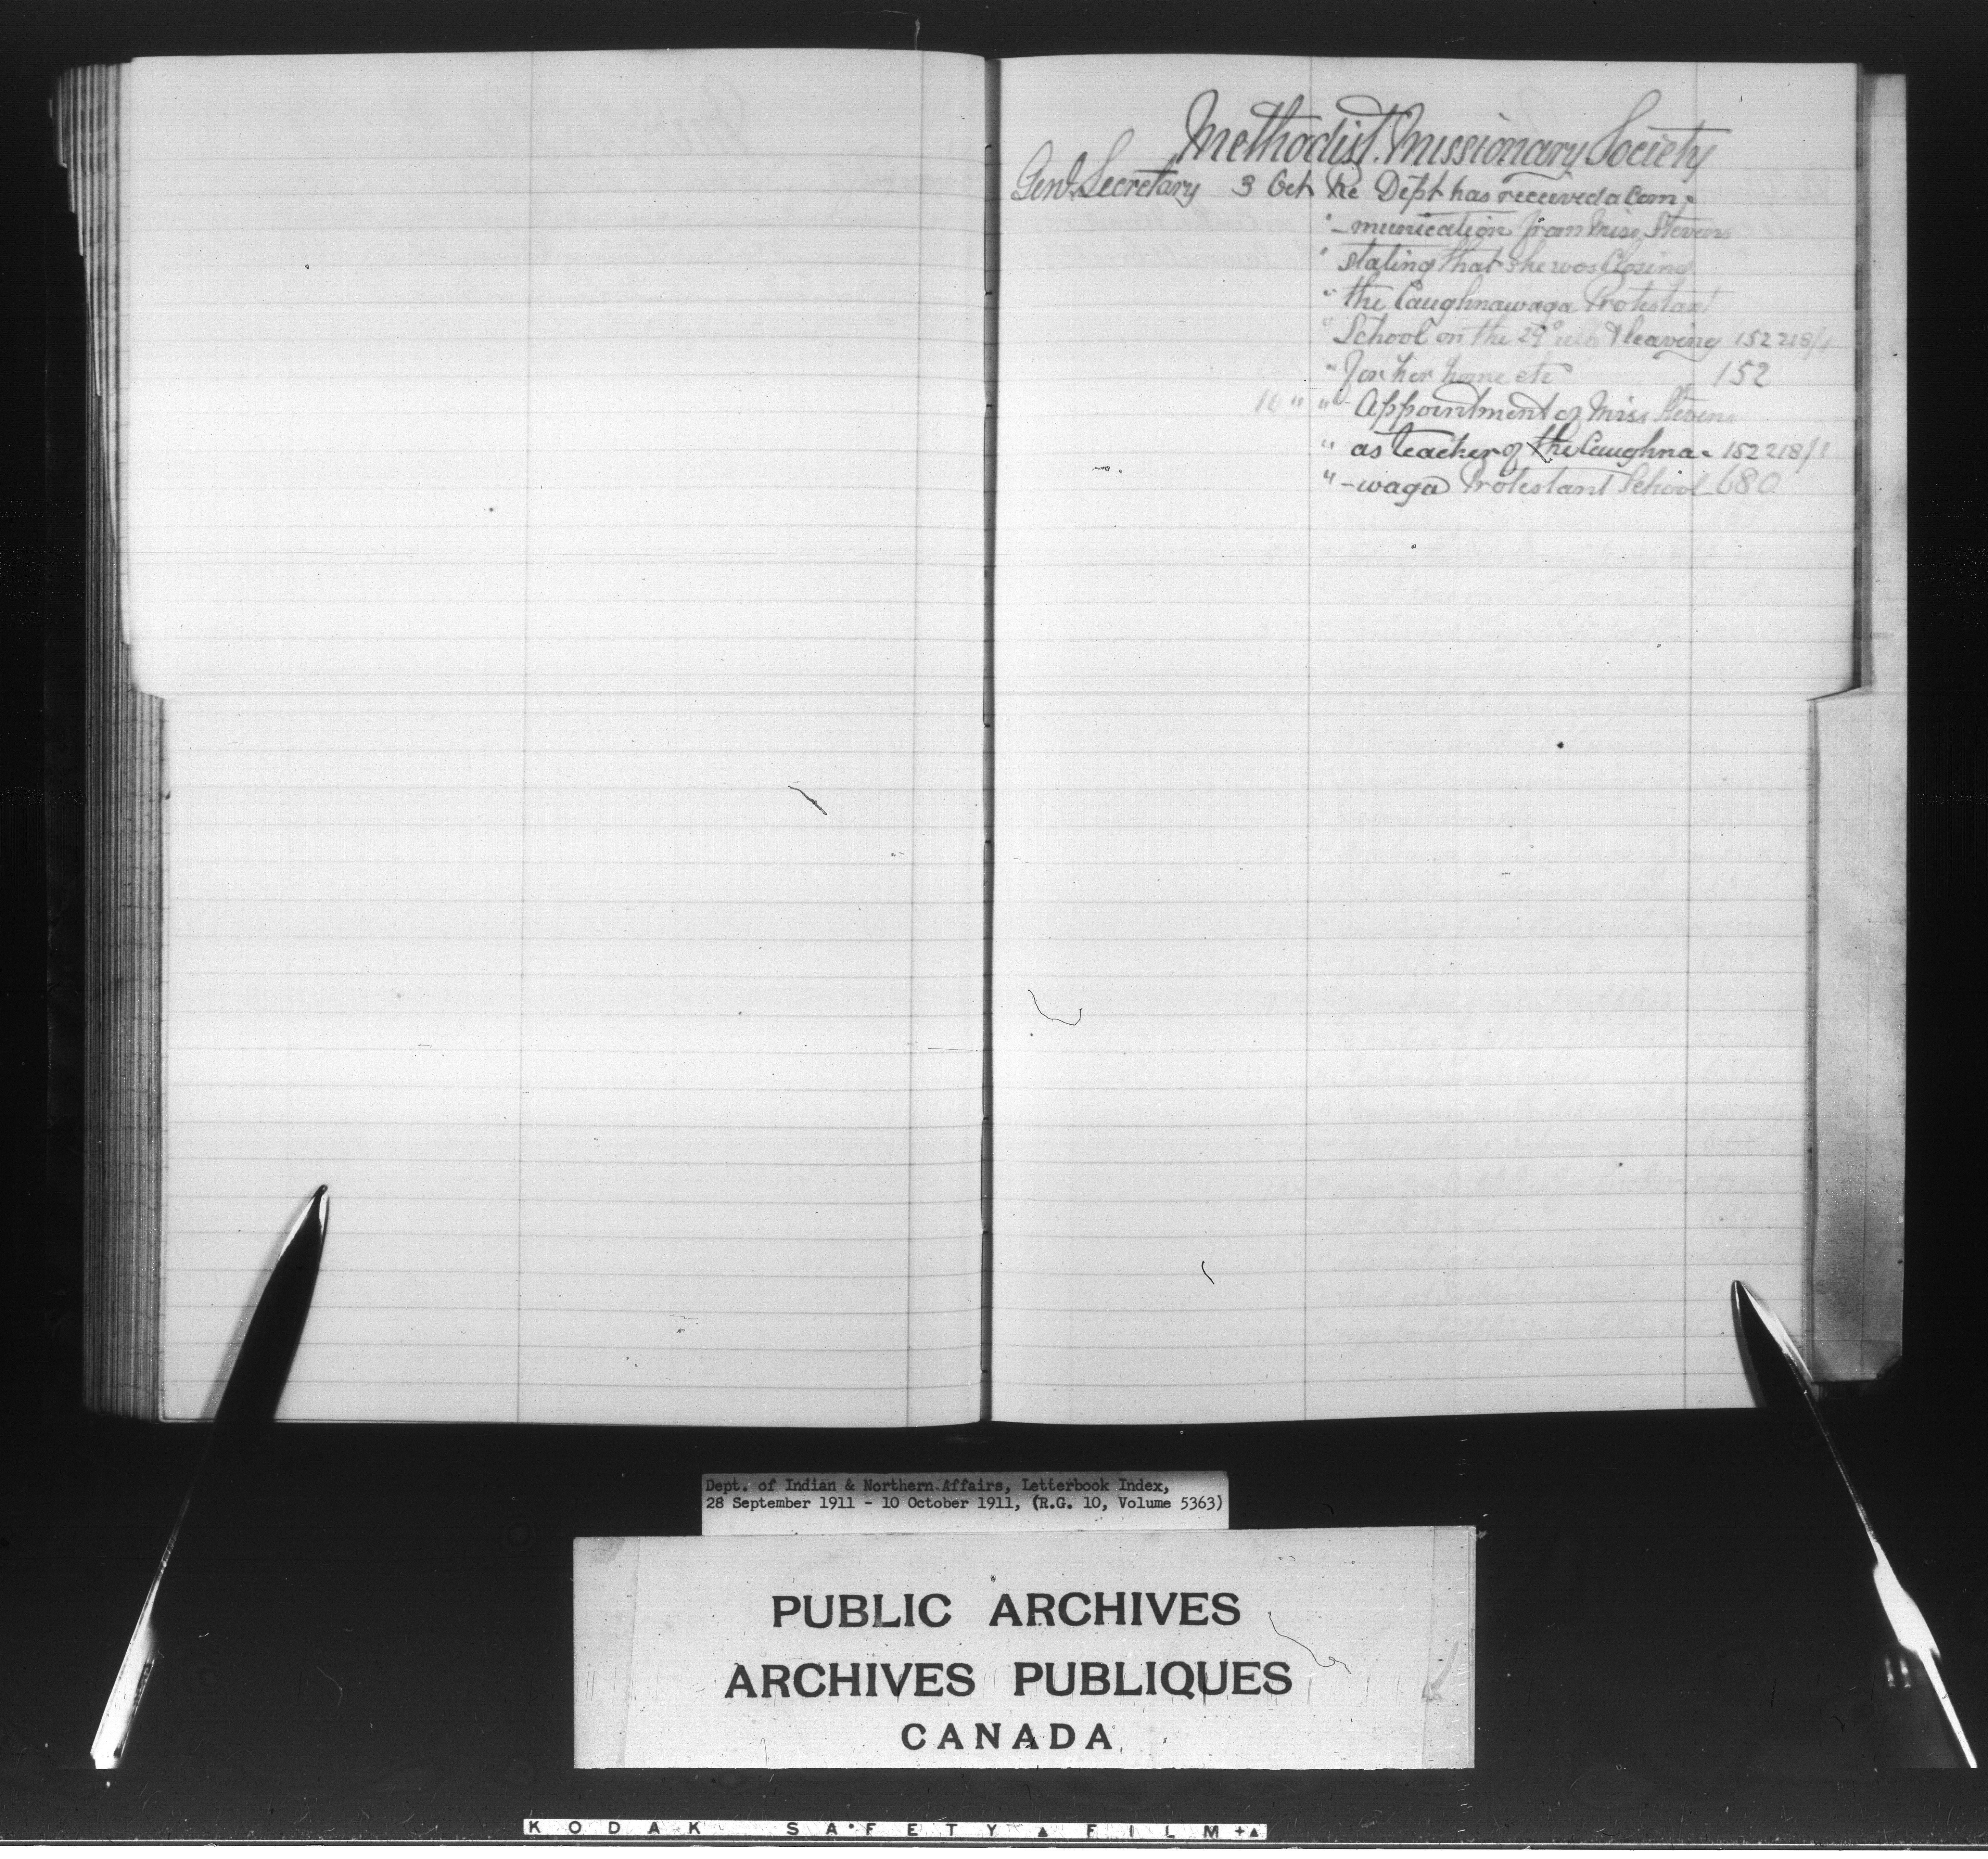 Methodist Missionary Society
Genl. Secretary 3 Oct Re Dept has received a Com-
"-munication from Miss Stevens
" stating that she was Closing
" the Caughnawaga Protestant
" School on the 29° ulto & leaving 152218/1
" for her home etc 152
10 " " Appointment of Miss Stevens
" as teacher of the Caughna- 152218/1
" -waga Protestant School 680
Dept. of Indian & Northern Affairs, Letterbook Index,
28 September 1911 - 10 October 1911, (R.G. 10, Volume 5363)
PUBLIC ARCHIVES
ARCHIVES PUBLIQUES
CANADA
KODAK SAFETY ▲ FILM +▲